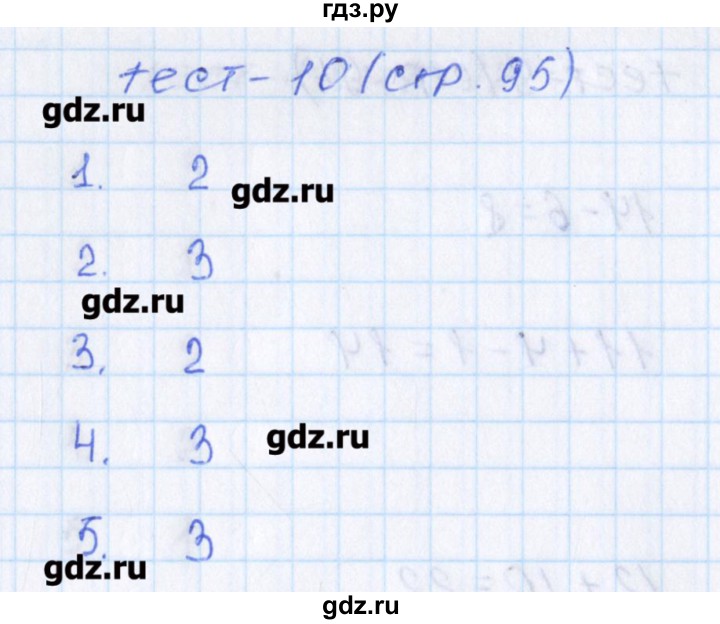 гдз.ру
тест-10 (стр. 95)
gdz.ru
1. 2
gdz.ru
2. 3
gdz.ru
3. 2
4. 3
gdz.ru
5. 3
gdz.ru
gdz.ru